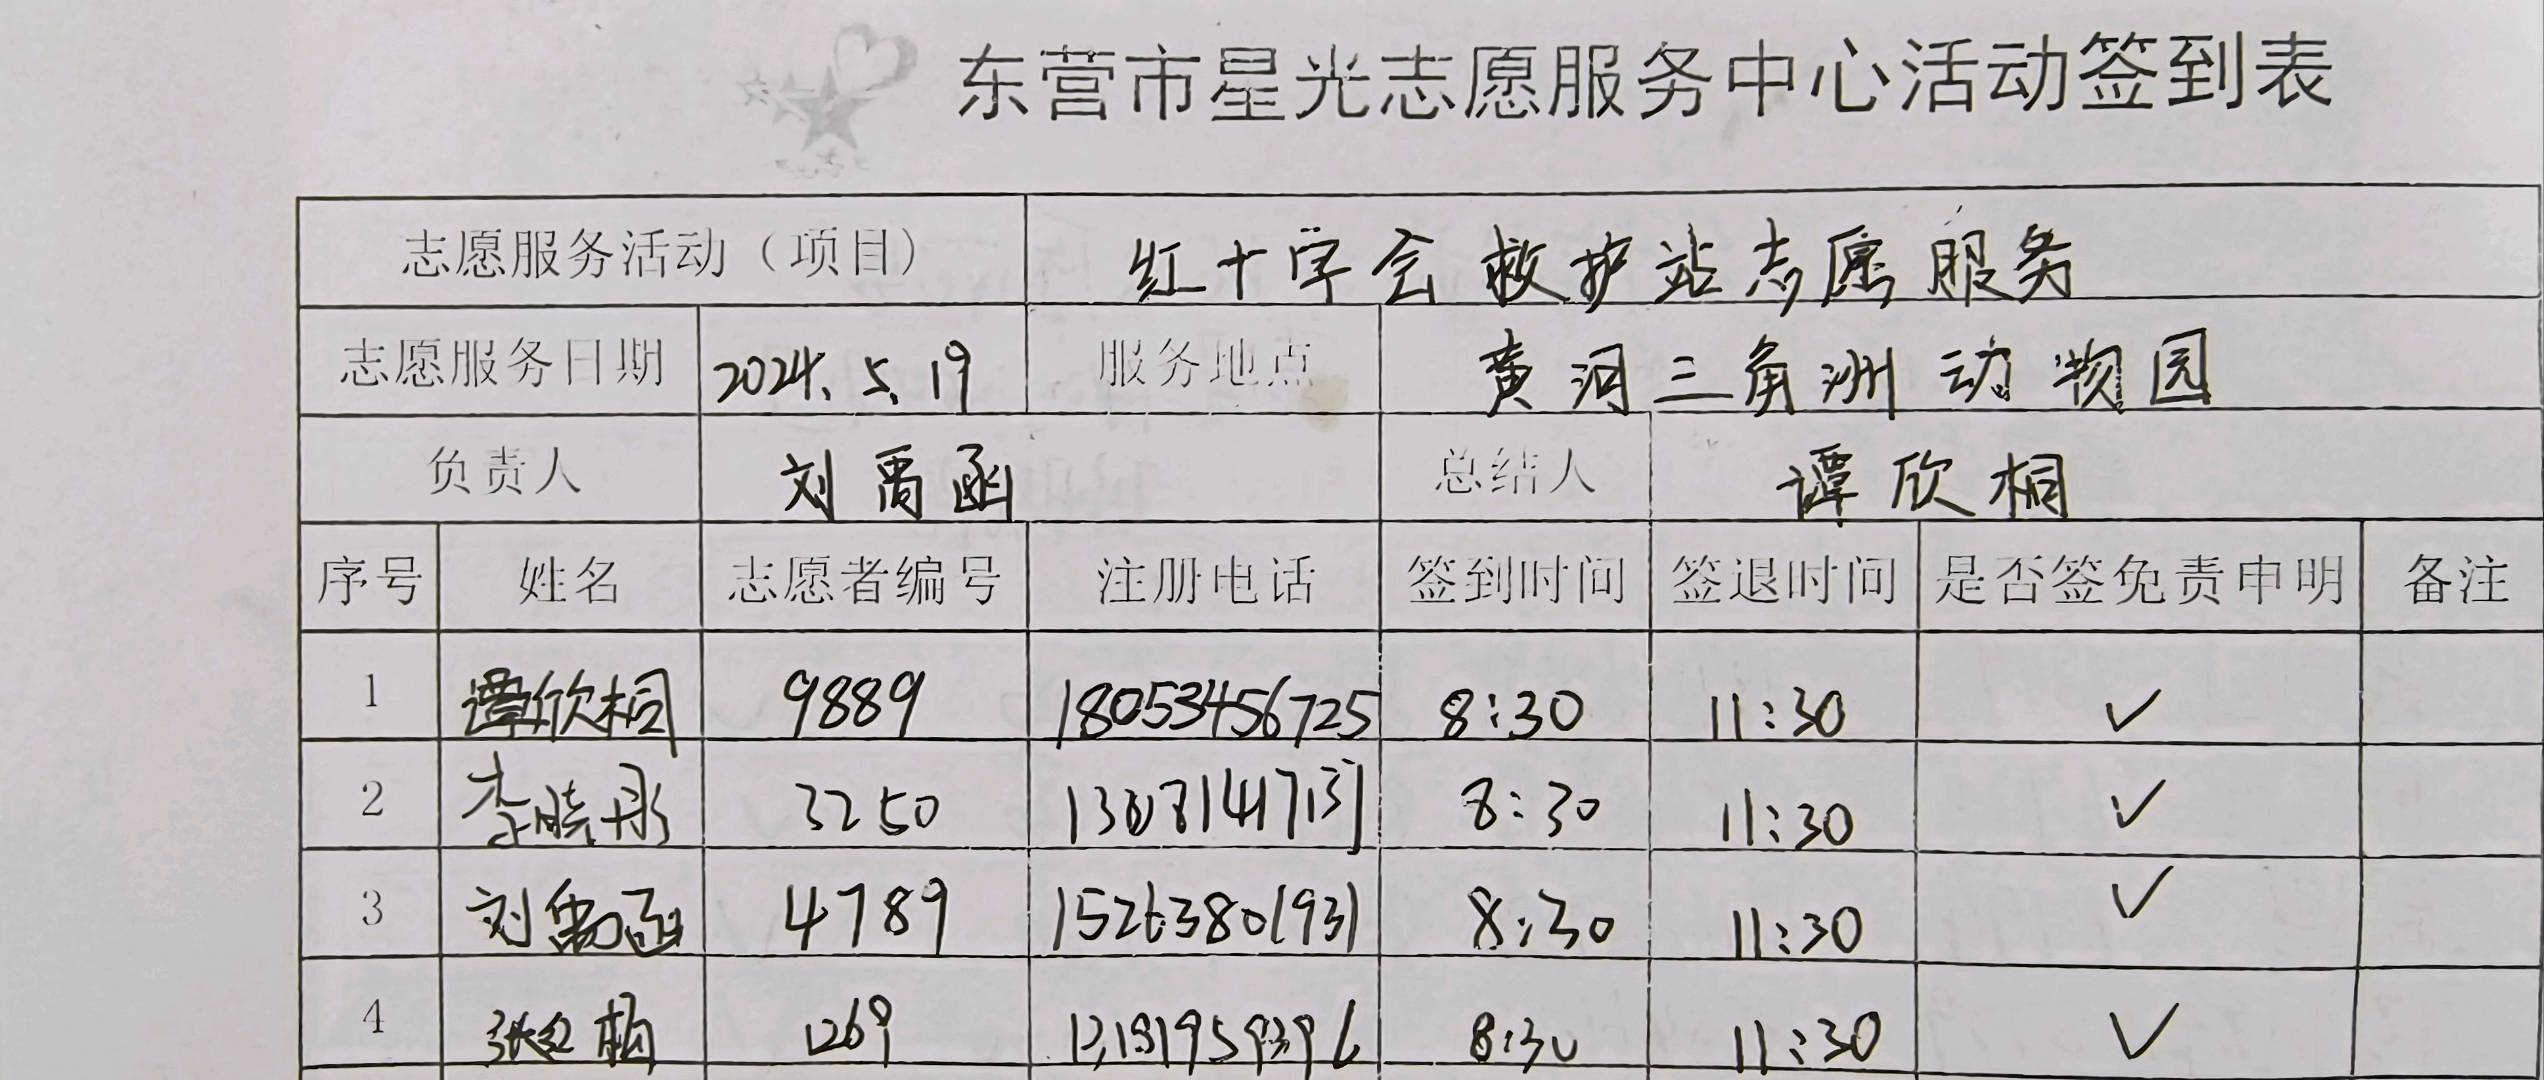 东营市星光志愿服务中心活动签到表
志愿服务活动（项目） 红十字会救护站志愿服务
志愿服务日期 2024.5.19 服务地点 黄河三角洲动物园
负责人 刘禹函 总结人 谭欣桐
序号 姓名 志愿者编号 注册电话 签到时间 签退时间 是否签免责申明 备注
1 谭欣桐 9889 18053456725 8:30 11:30 ✓
2 李晓彤 3250 8:30 11:30 ✓
3 刘禹函 4789 15263801931 8:30 11:30 ✓
4 1269 8:30 11:30 ✓